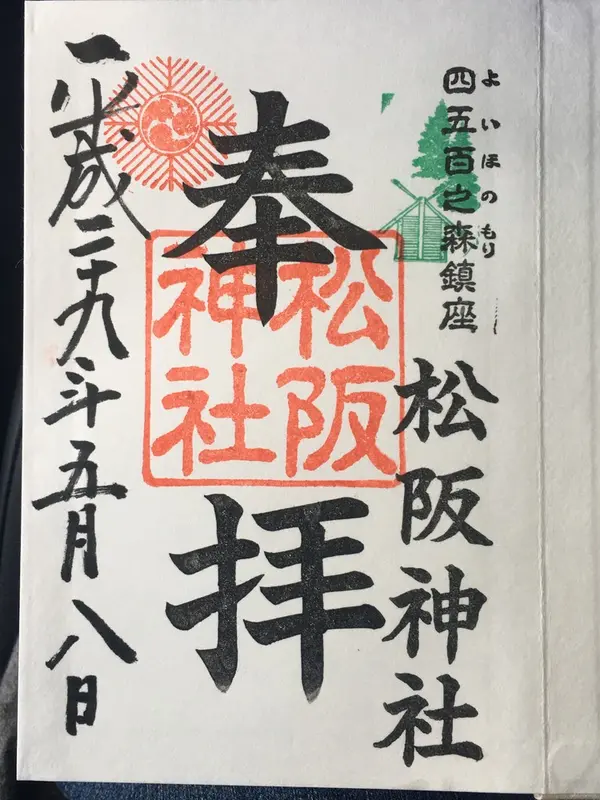 四五百之森鎮座
よいほのもり
松阪神社
奉拝
松阪神社
平成二十九年五月八日